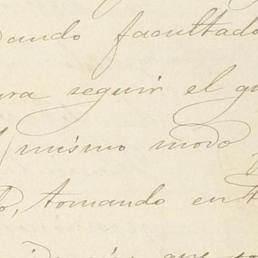 dando facultado
ara seguir el gu
mismo modo
o, tomando en t
que